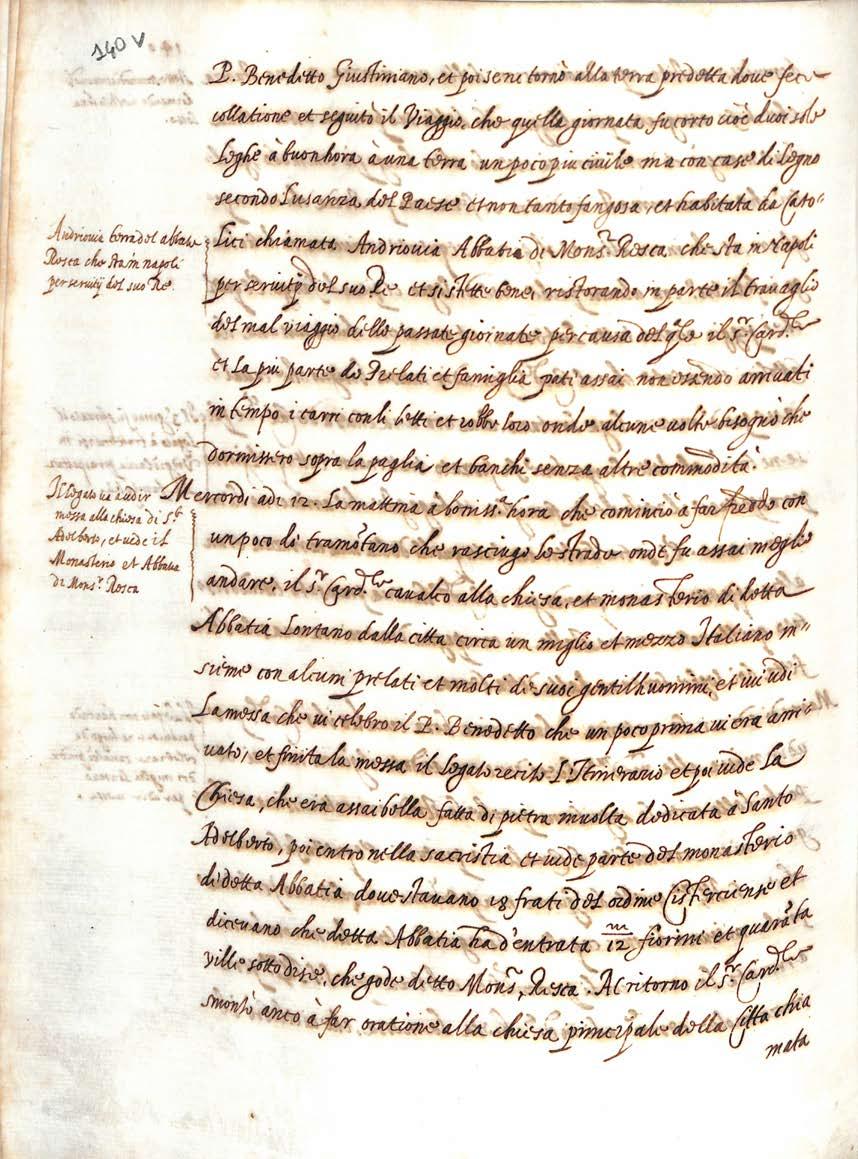 140 v
P. Benedetto Giustiniano, et poi se ne tornò alla terra predetta dove fece
collatione et seguitò il Viaggio, che quella giornata fu corto cioè duoi sole
Leghe à buon hora à una terra un poco piu civile ma con case di Legno
secondo l'usanza del Paese et non tanto fangosa, et habitata da Cato-
lici chiamata Andriovia Abbatia di Mons.r Resca che sta in Napoli
per servitij del suo Re et si stette bene, ristorando in parte il travaglio
del mal viaggio delle passate giornate per causa del q.le il s.r Card.le
et La piu parte de Prelati et famiglia pati assai non essendo arrivati
in tempo i carri con li letti et robbe loro onde alcune volte bisognò che
dormissero sopra la paglia et banchi senza altre commodità.
Andriovia terra del abbate
Resca che sta in napoli
per servitij del suo Re.
Mercordi adi 12. La mattina à boniss.a hora che cominciò à far freddo con
un poco di tramōtano che rasciugo le strade onde fu assai meglio
andare, il s.r Card.le cavalco alla chiesa, et monasterio di detta
Abbatia Lontano dalla citta circa un miglio et mezzo Italiano in-
sieme con alcuni prelati et molti de suoi gentilhuomini, et ivi udì
La messa che vi celebro il P. Benedetto che un poco prima vi era arri-
vato, et finita la messa il Legato recitò l'Itinerario et poi vide La
Chiesa, che era assai bella fatta di pietra in volta dedicata à Santo
Adelberto, poi entro nella sacristia et vide parte del monasterio
di detta Abbatia dove stavano 18 frati del ordine Cisterciense et
dicevano che detta Abbatia ha d'entrata 12 m fiorini et quarāta
ville sotto di se, che gode detto Mons.r Resca. Al ritorno il s.r Card.le
smontò anco à far oratione alla chiesa principale della Citta chia
mata
Il legato va à udir
messa alla chiesa di S.to
Adelberto, et vide il
Monasterio et Abbatia
di Mons.r Resca